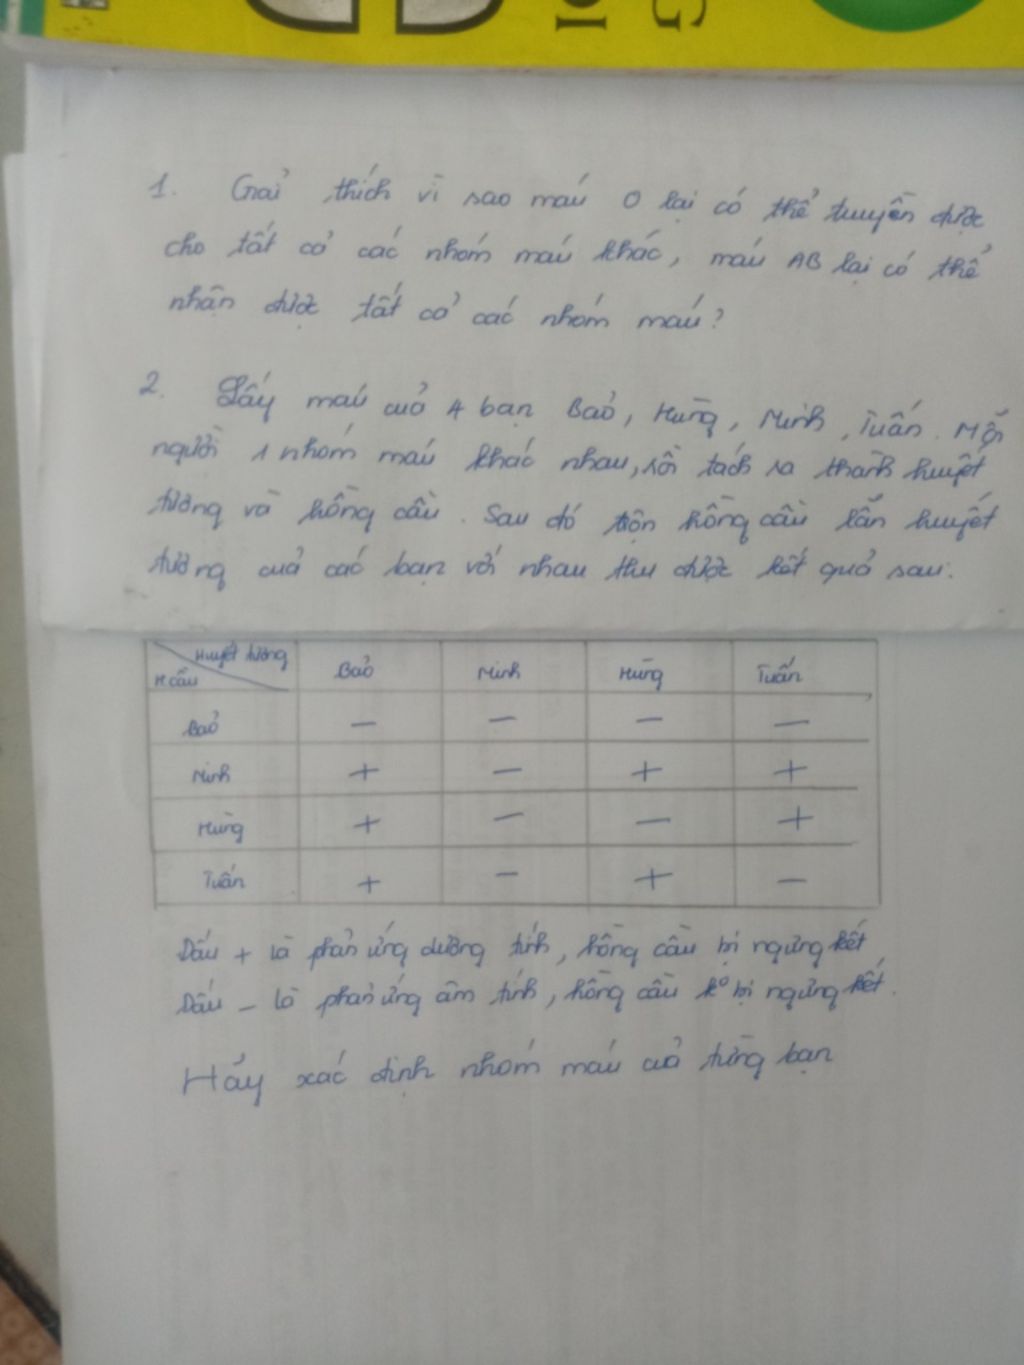 1. Giải thích vì sao máu O lại có thể truyền được
cho tất cả các nhóm máu khác, máu AB lại có thể
nhận được tất cả các nhóm máu?
2. Lấy máu của 4 bạn Bảo, Hùng, Minh, Tuấn. Mỗi
người 1 nhóm máu khác nhau, rồi tách ra thành huyết
tương và hồng cầu. Sau đó trộn hồng cầu lẫn huyết
tương của các bạn với nhau thu được kết quả sau:
Huyết tương
H cầu Bảo Minh Hùng Tuấn
Bảo - - - -
Minh + - + +
Hùng + - - +
Tuấn + - + -
Dấu + là phản ứng dương tính, hồng cầu bị ngưng kết
Dấu - là phản ứng âm tính, hồng cầu ko bị ngưng kết.
Hãy xác định nhóm máu của từng bạn